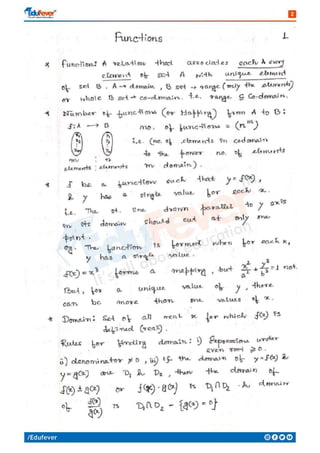 Edufever
2
Functions
1.
* Function: A relation that associates each & every
element of set A with unique element
of set B. A → domain, B set → range (only the elements)
or whole B set → co-domain. i.e. range ⊆ Co-domain.
* Number of functions (or Mapping) from A to B:
f: A → B no. of functions = (nᵐ)
i.e. (no. of elements in codomain
to the power no. of elements
elements elements in domain).
* f be a function such that y = f(x),
& y has a single value for each x.
i.e. The st. line drawn parallel to y axis
in its domain should cut at only one
point.
eg. The function is formed when for each x,
y has a single value.
f(x) = x³ forms a mapping, but x²/a² + y²/b² = 1 not.
But, for a unique value of y, there
can be more than one values of x.
* Domain: Set of all real x for which f(x) is
defined (real).
Rules for finding domain: i) Expression under
even root ≥ 0.
ii) denominator ≠ 0, iii) If the domain of y = f(x) &
y = g(x) are D₁ & D₂, then the domain of
f(x) ± g(x) or f(x)·g(x) is D₁∩D₂. & domain
of f(x)/g(x) is D₁∩D₂ − {g(x) = 0}
/Edufever